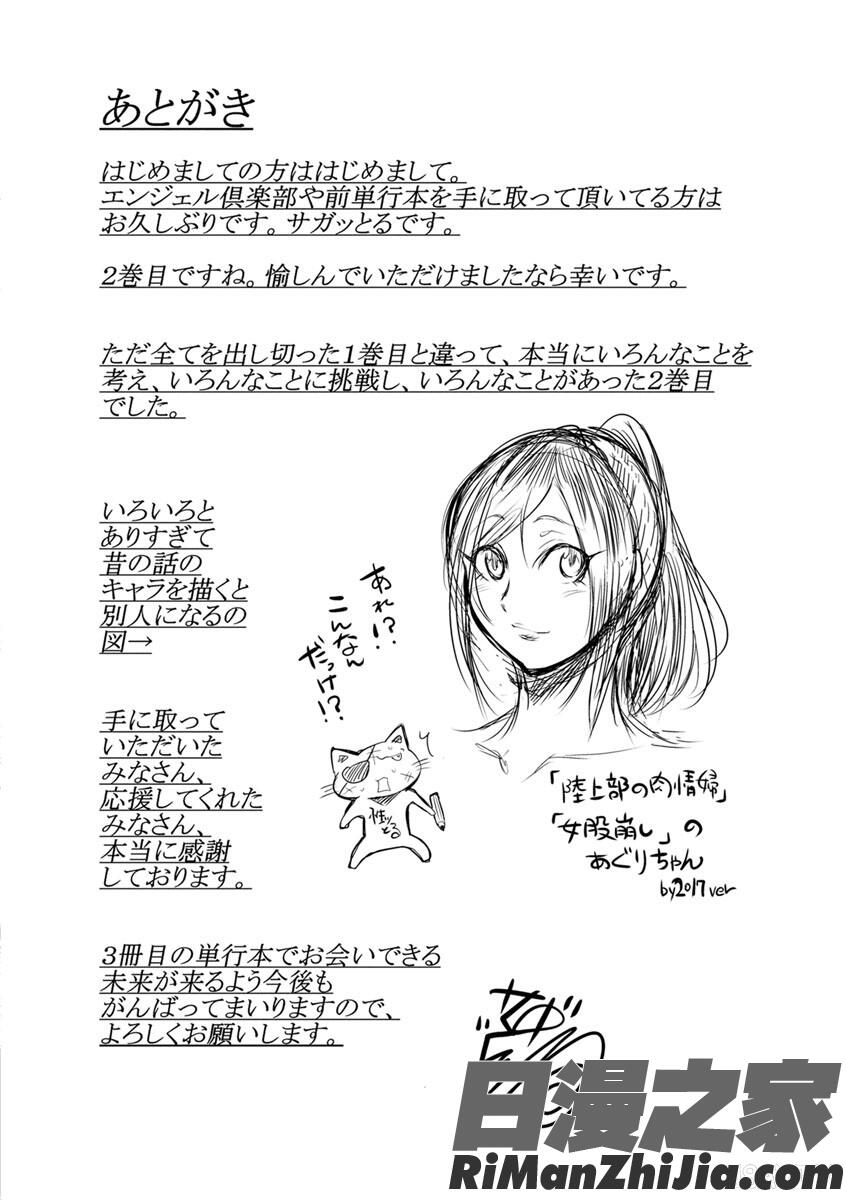 あとがき
はじめましての方ははじめまして。
エンジェル倶楽部や前単行本を手に取って頂いてる方は
お久しぶりです。サガッとるです。
2巻目ですね。愉しんでいただけましたなら幸いです。
ただ全てを出し切った1巻目と違って、本当にいろんなことを
考え、いろんなことに挑戦し、いろんなことがあった2巻目
でした。
いろいろと
ありすぎて
昔の話の
キャラを描くと
別人になるの
図→
あれ!?
こんなん
だっけ!?
手に取って
いただいた
みなさん、
応援してくれた
みなさん、
本当に感謝
しております。
「陸上部の肉情婦」
「女股崩し」の
あぐりちゃん
by2017ver
3冊目の単行本でお会いできる
未来が来るよう今後も
がんばってまいりますので、
よろしくお願いします。
日漫之家
RiManZhiJia.com